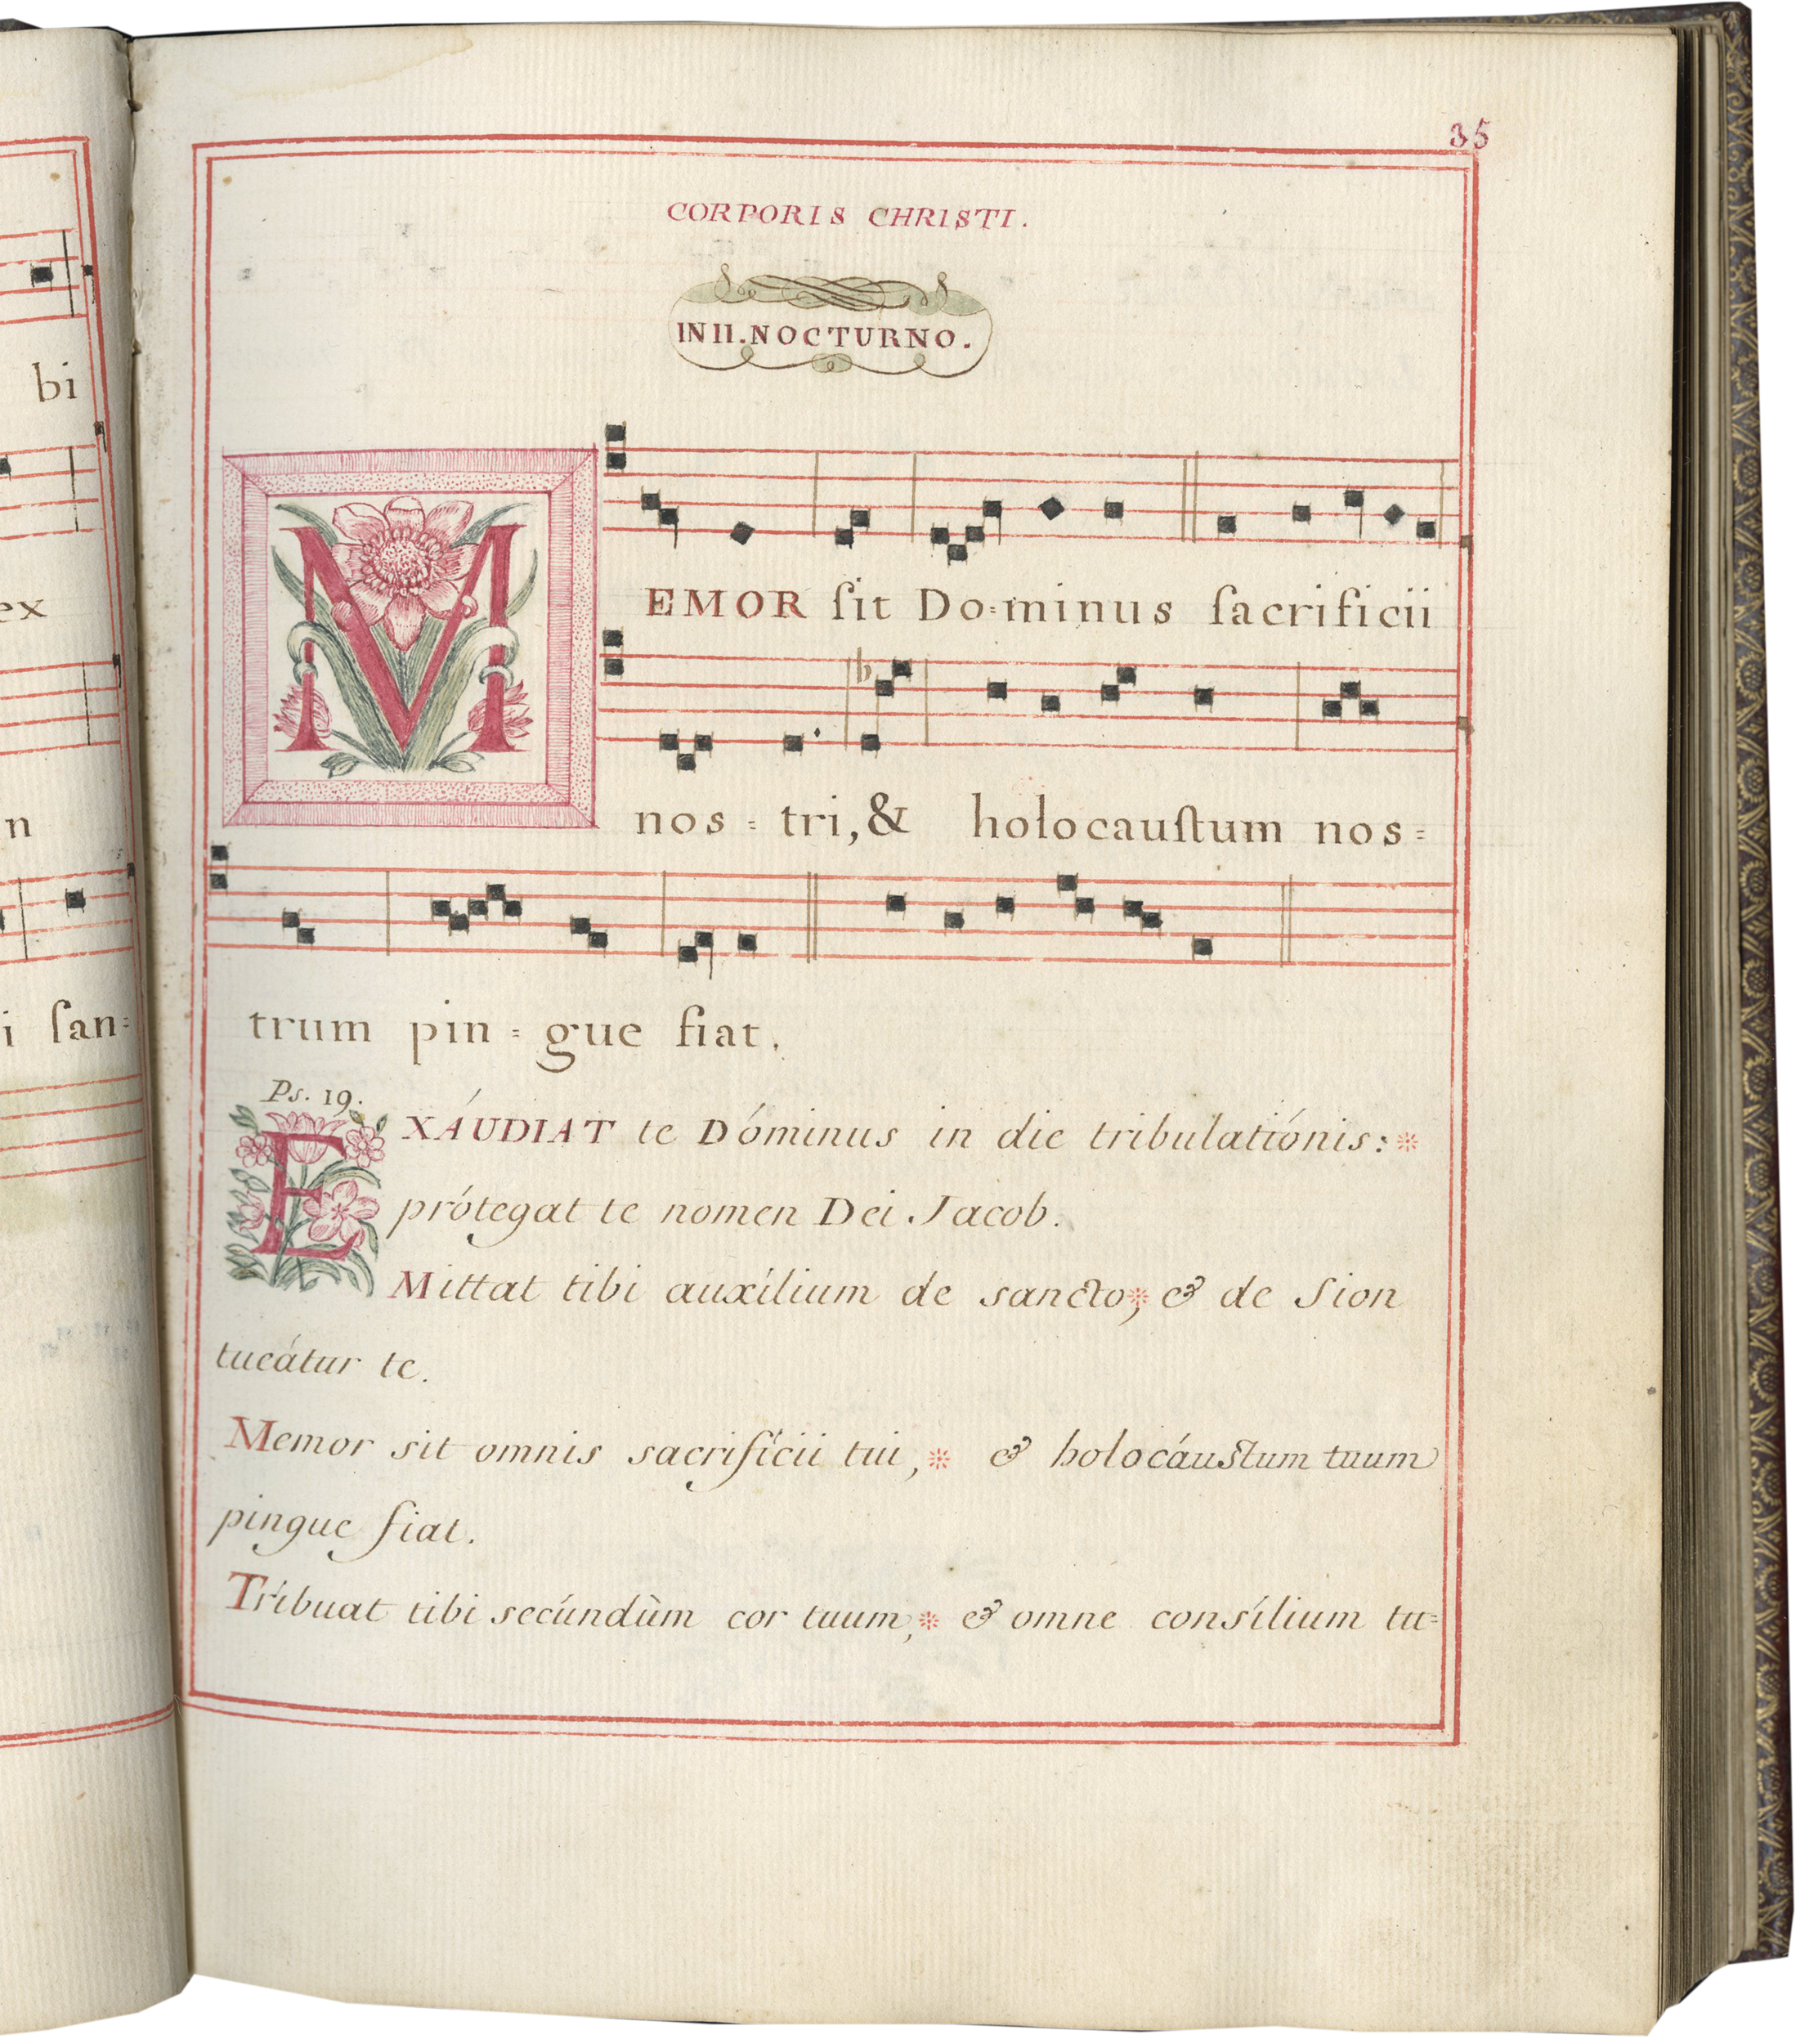 bi
ex
n
i ſan=
35
CORPORIS CHRISTI.
IN II. NOCTURNO.
MEMOR ſit Do=minus ſacrificii
nos=tri, & holocauſtum nos=
trum pin=gue fiat.
Ps. 19.
EXÁUDIAT te Dóminus in die tribulatiónis: *
prótegat te nomen Dei Jacob.
Mittat tibi auxílium de sancto, * & de Sion
tueátur te.
Memor sit omnis sacrifícii tui, * & holocáustum tuum
pingue fiat.
Tríbuat tibi secúndùm cor tuum, * & omne consílium tu=